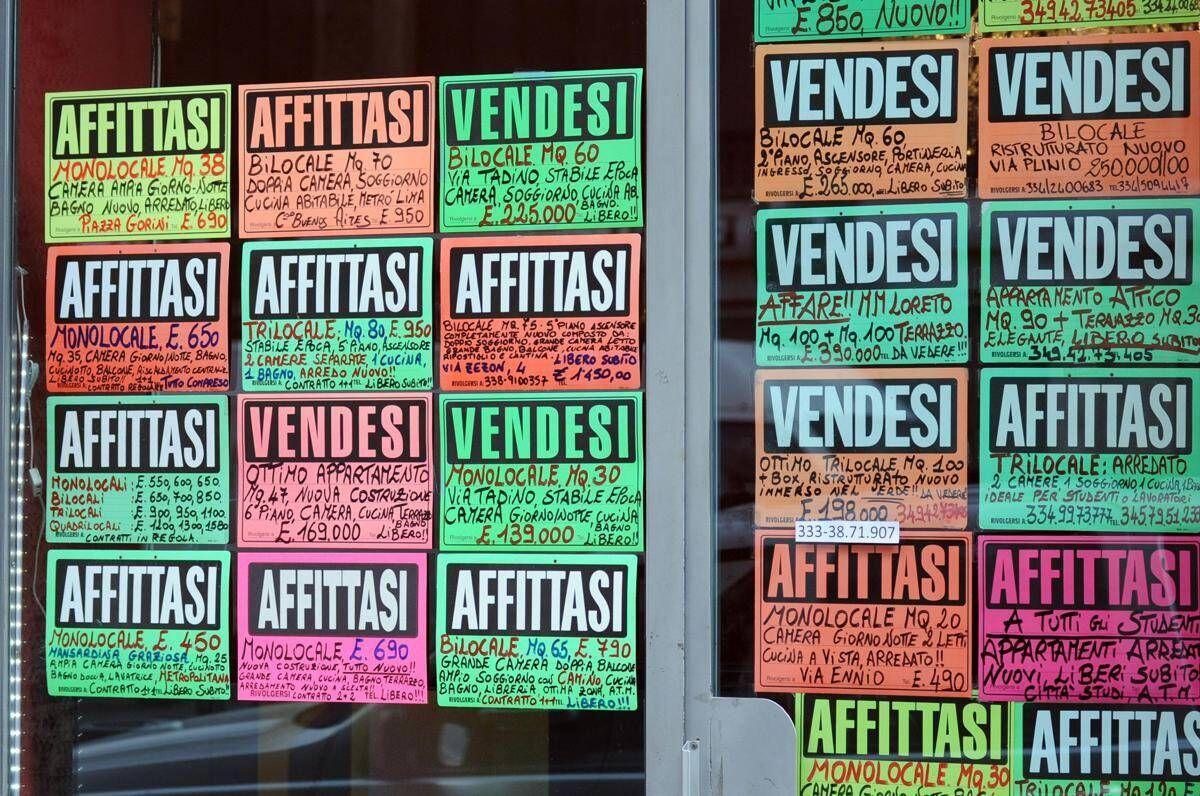 AFFITTASI
MONOLOCALE MQ. 38
CAMERA AMPIA GIORNO-NOTTE
BAGNO NUOVO, ARREDATO LIBERO
PIAZZA GORINI E. 690
AFFITTASI
BILOCALE MQ. 70
DOPPIA CAMERA, SOGGIORNO
CUCINA ABITABILE, METRO LIMA
C.SO BUENOS AIRES E 950
VENDESI
BILOCALE MQ. 60
VIA TADINO, STABILE EPOCA
CAMERA, SOGGIORNO, CUCINA AB.
BAGNO.
E. 225.000 LIBERO!!
AFFITTASI
MONOLOCALE, E. 650
MQ. 35, CAMERA GIORNO/NOTTE, BAGNO,
CUCINOTTO, BALCONE, RISCALDAMENTO CENTRALE
LIBERO SUBITO!! 1+1 TUTTO COMPRESO
RIVOLGERSI A CONTRATTO REGOLARE
AFFITTASI
TRILOCALE, MQ. 80 E. 950
STABILE EPOCA, 5° PIANO, ASCENSORE
2 CAMERE SEPARATE, 1 CUCINA,
1 BAGNO, ARREDO NUOVO!!
RIVOLGERSI A CONTRATTO 1+1 TEL. LIBERO SUBITO!!
AFFITTASI
BILOCALE, MQ. 75 - 5° PIANO ASCENSORE
COMPLETAMENTE NUOVO COMPOSTO DA:
DOPPIO SOGGIORNO, GRANDE CAMERA LETTO
GRANDE BAGNO, BALCONE, CUCINA ABITABILE
RIPOSTIGLIO E CANTINA - LIBERO SUBITO
VIA ZEZON, 4 E 1150,00
RIVOLGERSI A 338-9100357 TEL.
AFFITTASI
MONOLOCALI: E. 550, 600, 650
BILOCALI : E. 650, 700, 850
TRILOCALI : E. 900, 950, 1100
QUADRILOCALI: E. 1200, 1300, 1580
RIVOLGERSI A CONTRATTI IN REGOLA.
VENDESI
OTTIMO APPARTAMENTO
MQ. 47, NUOVA COSTRUZIONE
6° PIANO, CAMERA, CUCINA TERRAZZO
BAGNO
E. 169.000 LIBERO!!
VENDESI
MONOLOCALE, MQ. 30
VIA TADINO, STABILE EPOCA
CAMERA GIORNO/NOTTE, CUCINA
BAGNO
E. 139.000 LIBERO!!
AFFITTASI
MONOLOCALE, E. 450
MANSARDINA GRAZIOSA, MQ. 25
AMPIA CAMERA GIORNO NOTTE, CUCINOTTO
BAGNO DOCCIA, LAVATRICE, METROPOLITANA
RIVOLGERSI A CONTRATTO 1+1 TEL. LIBERO SUBITO!
AFFITTASI
MONOLOCALE, E. 690
NUOVA COSTRUZIONE, TUTTO NUOVO!!
GRANDE CAMERA, CUCINA, BAGNO, TERRAZZO,
ARREDAMENTO NUOVO A SCELTA!!
RIVOLGERSI CONTRATTO 2+2 TEL LIBERO!!
AFFITTASI
BILOCALE, MQ 65, E. 790
GRANDE CAMERA DOPPIA, BALCONE
AMPIO SOGGIORNO CON CAMINO, CUCINA
BAGNO, LIBRERIA, OTTIMA ZONA, A.T.M.
RIVOLGERSI A CONTRATTO 1+1 TEL. LIBERO!!!
E. 850, NUOVO!!
3494273405
VENDESI
BILOCALE MQ. 60
2° PIANO, ASCENSORE, PORTINERIA
INGRESSO, SOGGIORNO, CAMERA, CUCINA
E. 265.000, LIBERO SUBITO
VENDESI
BILOCALE
RISTRUTTURATO NUOVO
VIA PLINIO 250000/00
RIVOLGERSI A 3342400683 TEL.
VENDESI
AFFARE!! MM LORETO
MQ. 100 + MQ. 100 TERRAZZO
E. 390.000 DA VEDERE!!
VENDESI
APPARTAMENTO ATTICO
MQ. 90 + TERRAZZO MQ. 3
ELEGANTE, LIBERO SUBITO
349.42.73.405
VENDESI
OTTIMO TRILOCALE, MQ. 100
+ BOX, RISTRUTTURATO NUOVO
IMMERSO NEL VERDE!! DA VEDERE
E. 198000
333-38.71.907
AFFITTASI
TRILOCALE: ARREDATO
2 CAMERE 1 SOGGIORNO, 1 CUCINA, 1 BAGNO
IDEALE PER STUDENTI O LAVORATORI
RIVOLGERSI A 3349973777 TEL. 34579512
AFFITTASI
MONOLOCALE MQ 20
CAMERA GIORNO NOTTE 2 LETTI
CUCINA A VISTA, ARREDATO!!
VIA ENNIO E. 490
AFFITTASI
A TUTTI GLI STUDENTI
APPARTAMENTI ARREDATI
NUOVI, LIBERI SUBITO
CITTÀ STUDI, A.T.M.
AFFITTASI
MONOLOCALE MQ. 30
AFFITTASI
TRILOCALE MQ 120